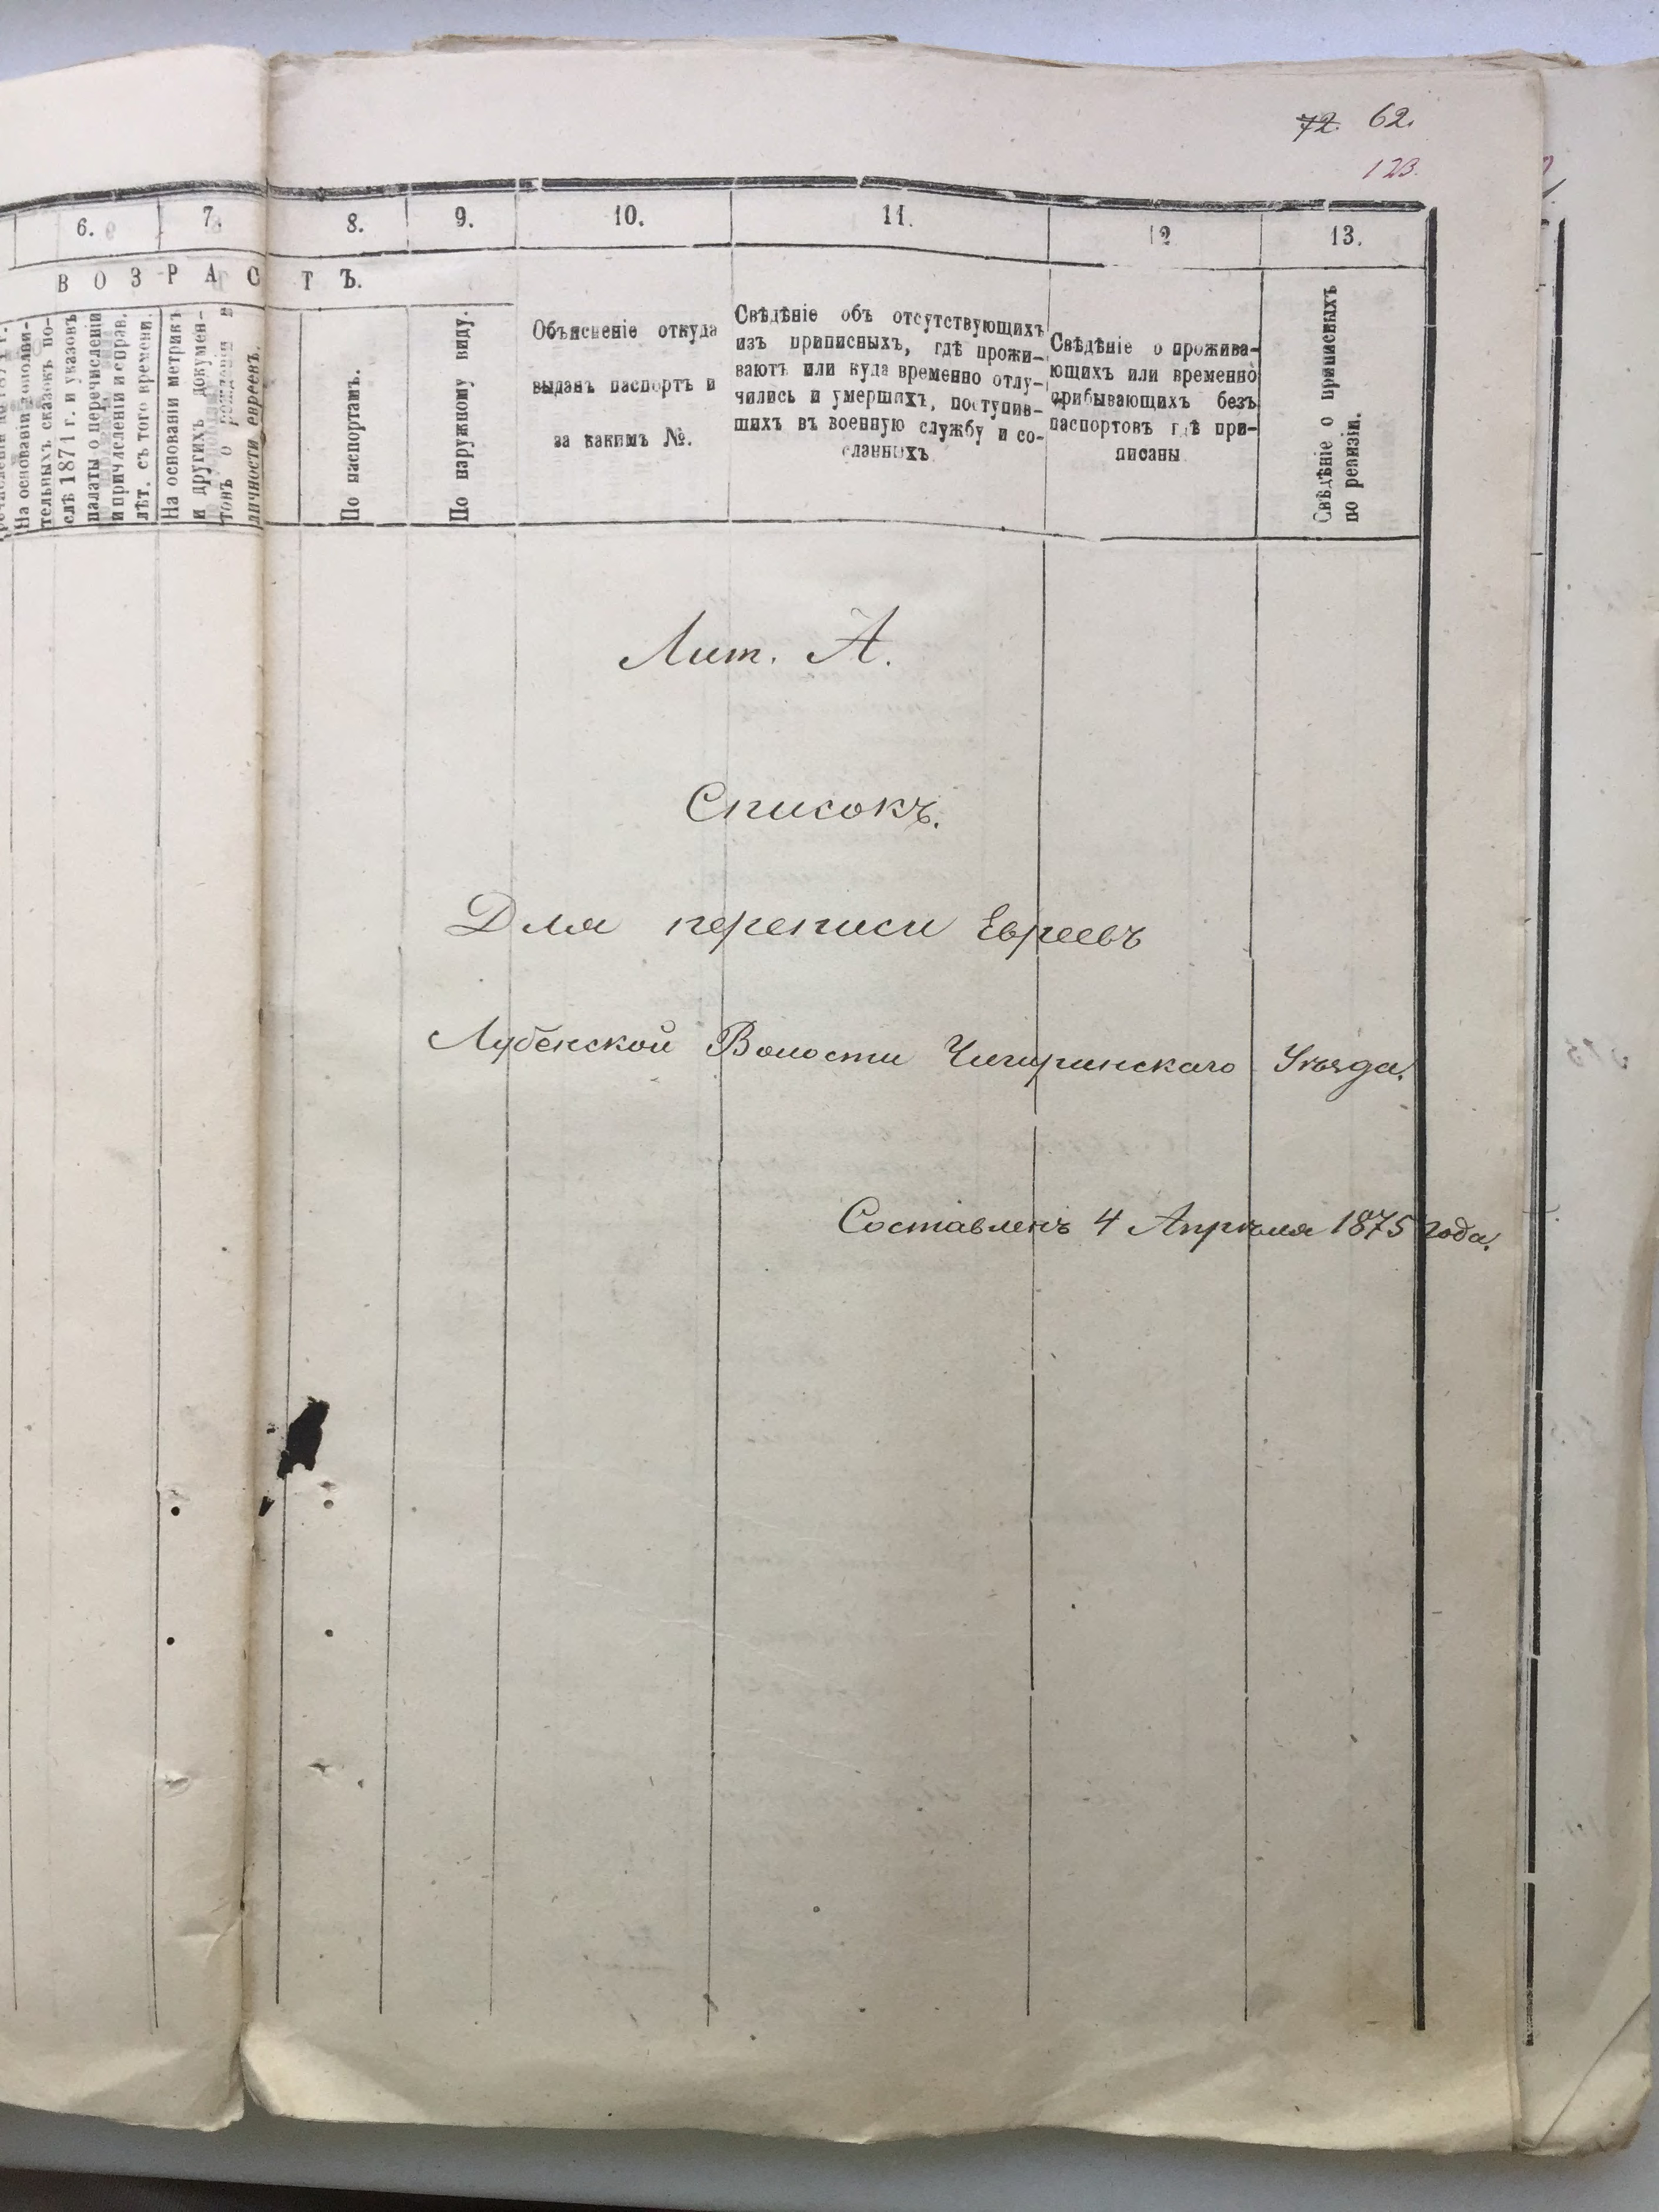 72. 62.
123.
6. 7. 8. 9. 10. 11. 12 13.
ВОЗРАСТЪ.
На основаніи дополни-
тельныхъ сказокъ по-
слѣ 1871 г. и указовъ
палаты о перечисленіи
и причисленіи и справ.
лѣт. съ того времени.
На основаніи метрикъ
и другихъ докумен-
товъ о рожденіи и
личности евреевъ.
По паспортамъ.
По наружному виду.
Объясненіе откуда
выданъ паспортъ и
за какимъ №.
Свѣдѣніе объ отсутствующихъ
изъ приписныхъ, гдѣ прожи-
ваютъ или куда временно отлу-
чились и умершихъ, поступив-
шихъ въ военную службу и со-
сланныхъ
Свѣдѣніе о прожива-
ющихъ или временно
прибывающихъ безъ
паспортовъ гдѣ при-
писаны
Свѣдѣніе о приписныхъ
по ревизіи.
Лит. А.
Списокъ.
Для переписи Евреевъ
Лубенской Волости Чигиринскаго Уѣзда.
Составленъ 4 Апрѣля 1875 года.